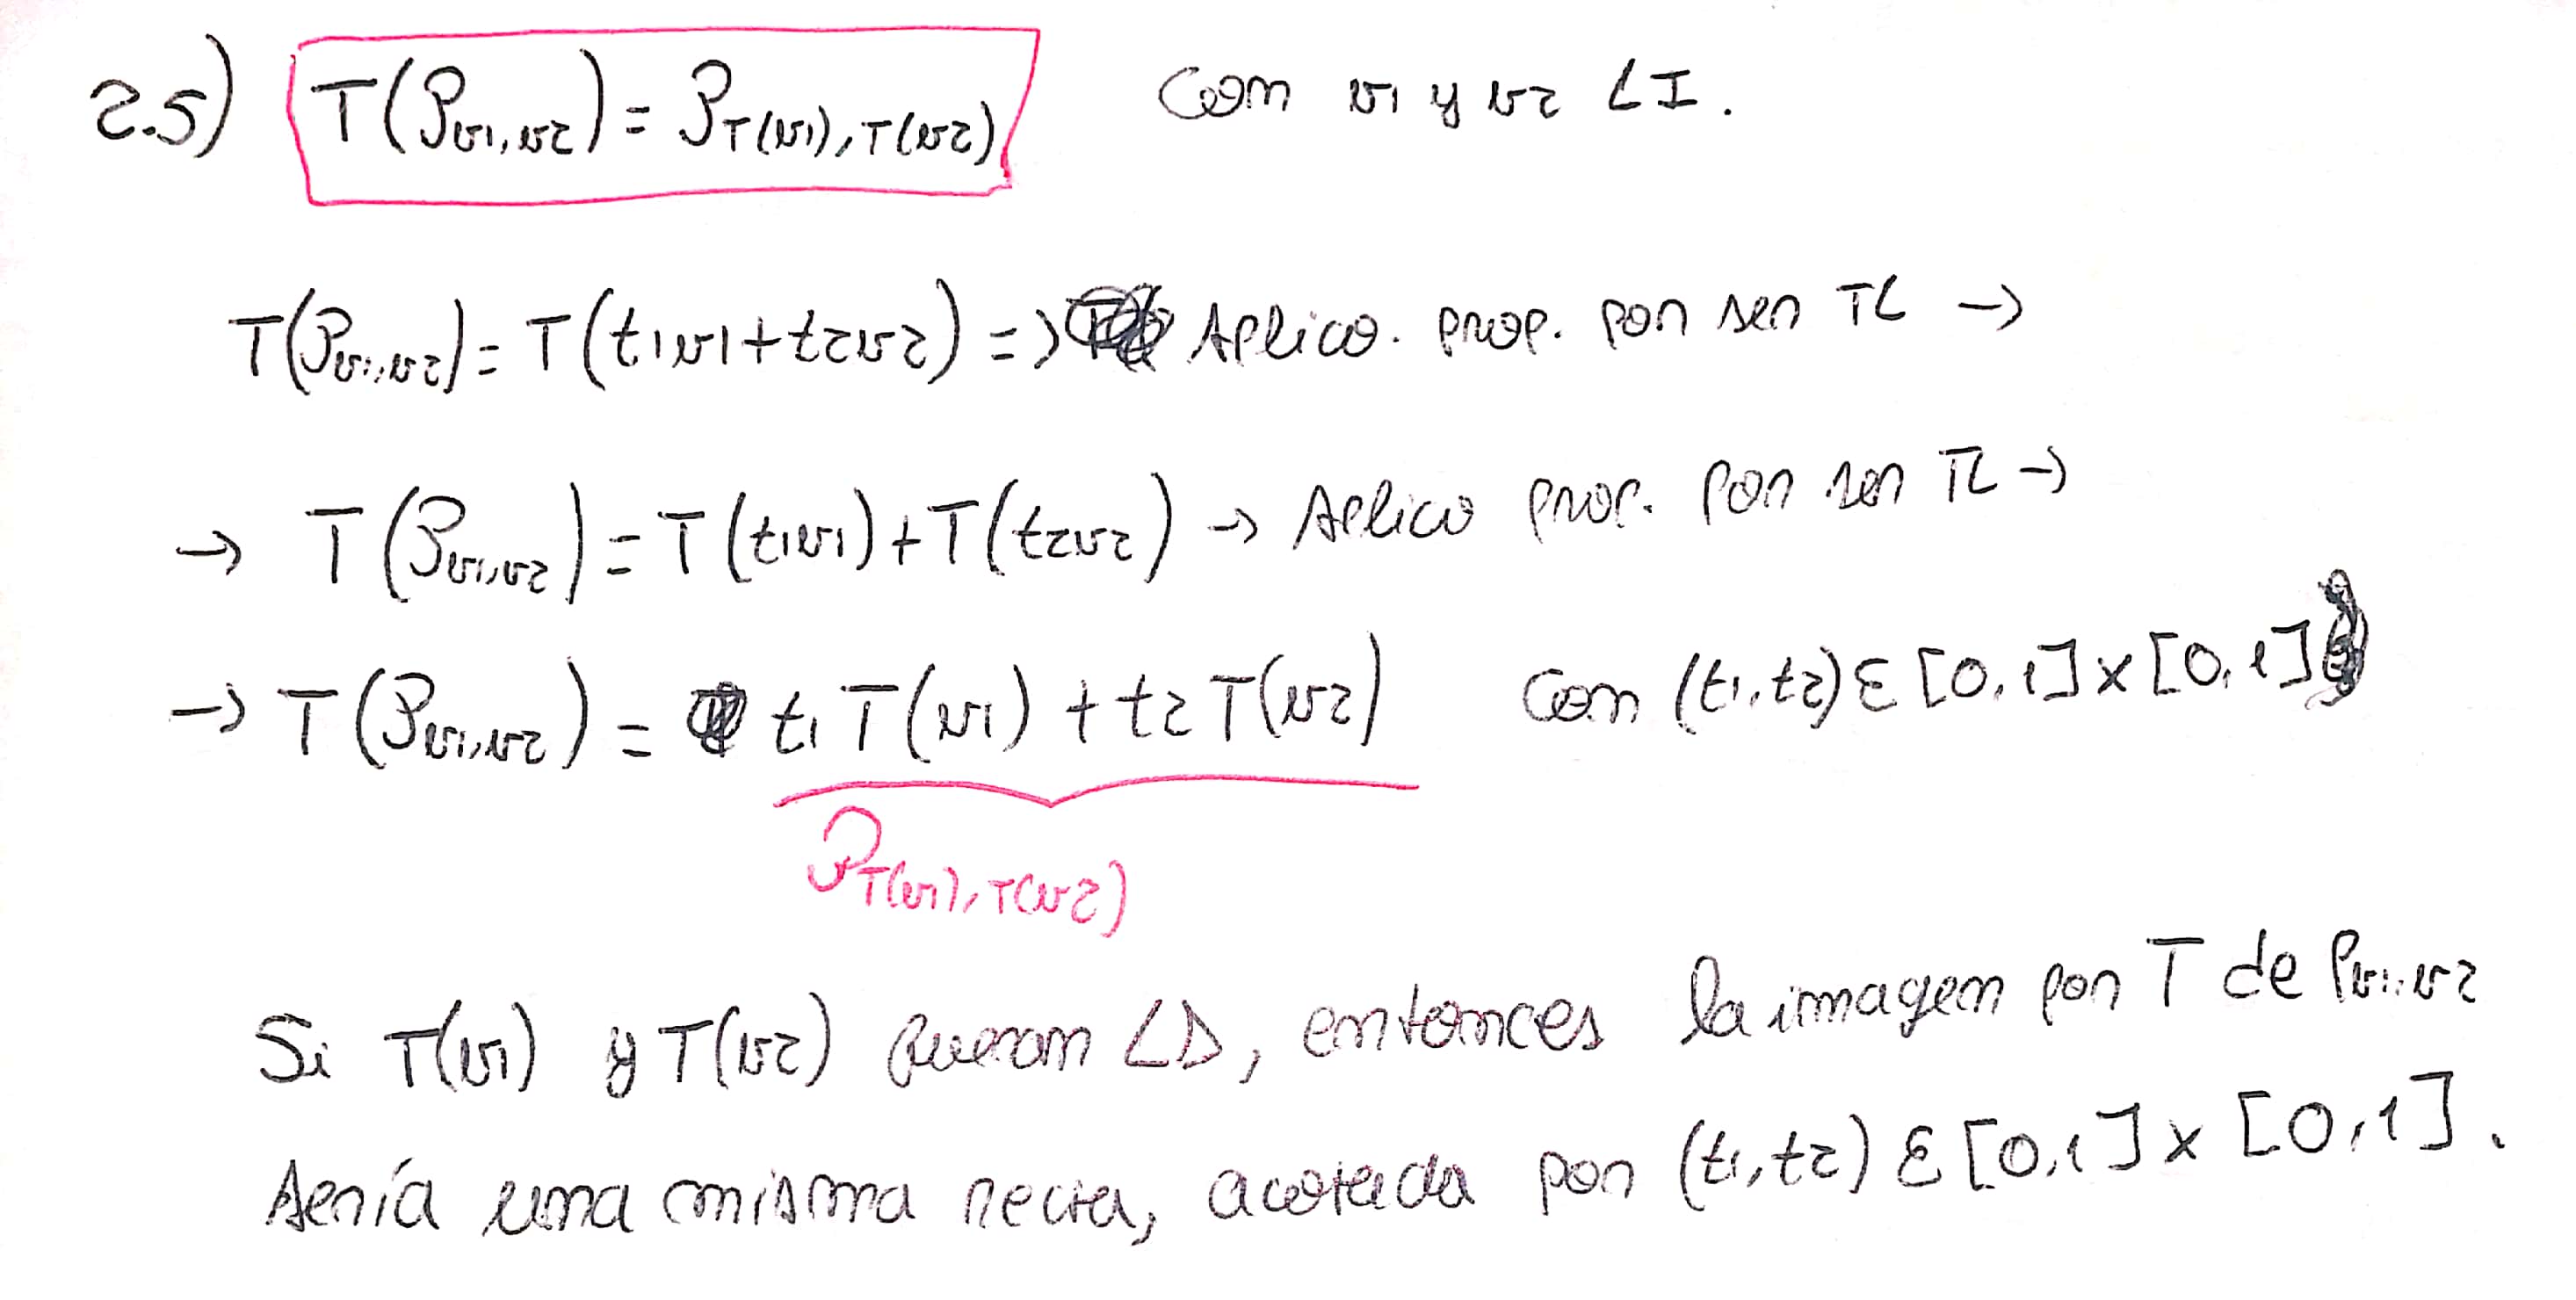 2.5) T(P_{v1,v2}) = P_{T(v1),T(v2)} Con v1 y v2 LI.
T(P_{v1,v2}) = T(t1v1+t2v2) => Aplico. prop. por ser TL →
→ T(P_{v1,v2}) = T(t1v1)+T(t2v2) → Aplico prop. por ser TL →
→ T(P_{v1,v2}) = t1 T(v1) + t2 T(v2) Con (t1,t2) ∈ [0,1] x [0,1]
P_{T(v1),T(v2)}
Si T(v1) y T(v2) fueran LD, entonces la imagen por T de P_{v1,v2}
sería una misma recta, acotada por (t1,t2) ∈ [0,1] x [0,1].